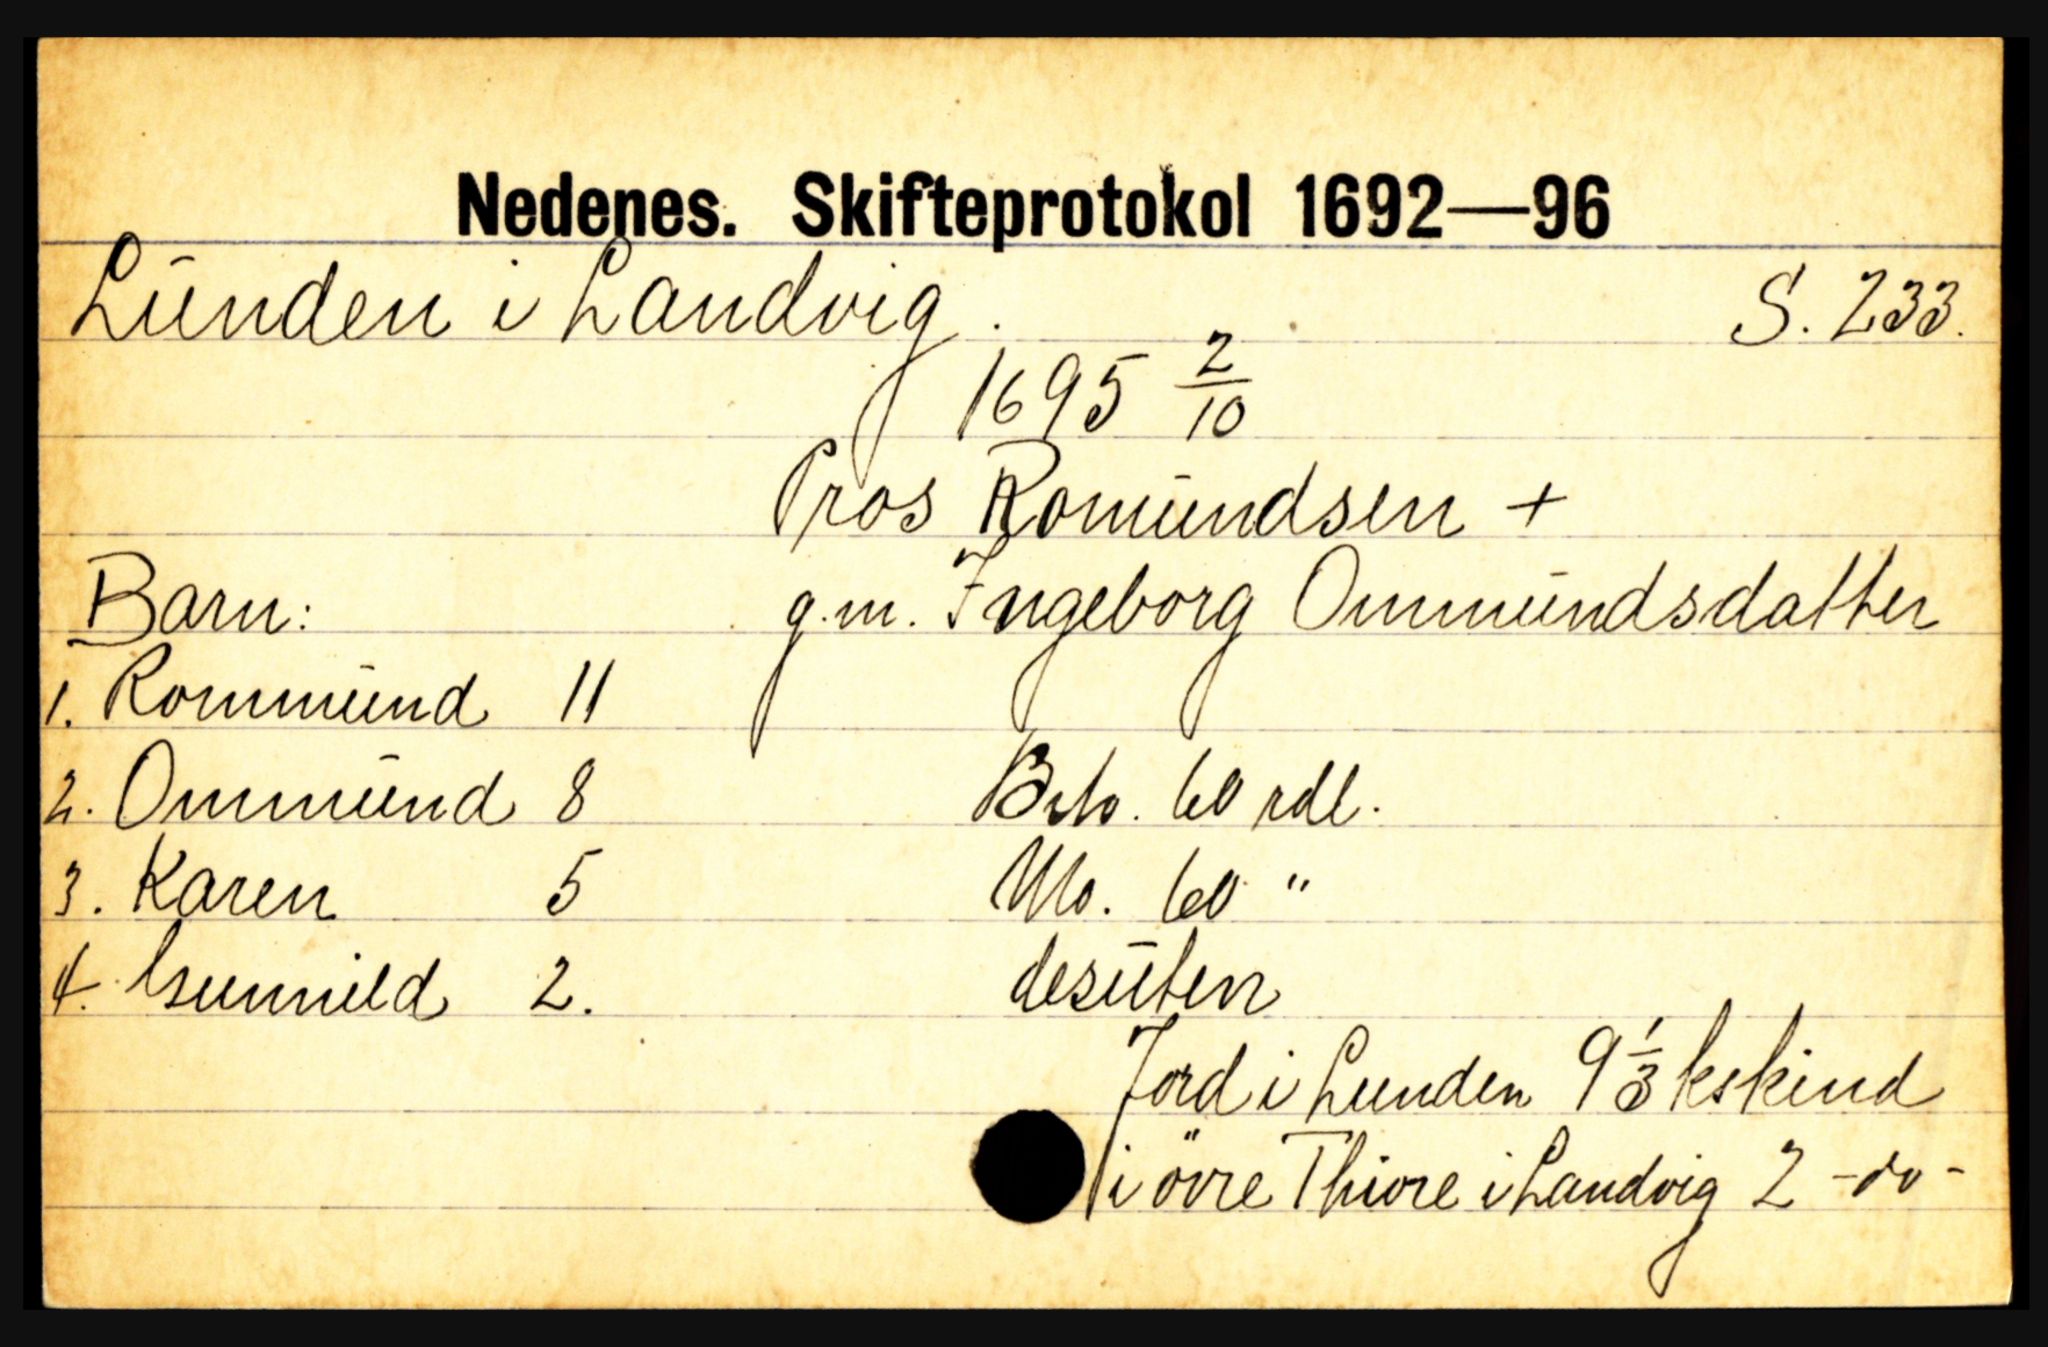 Nedenes. Skifteprotokol 1692—96
Lunden i Landvig. S. 233.
1695 2/10
Pros Romundsen +
Barn: g.m. Ingeborg Ommundsdatter
1. Rommund 11
2. Ommund 8 Bto. 60 rdl.
3. Karen 5 No. 60 "
4. Gunnild 2. desuten
Jord i Lunden 9 1/3 kskind
i övre Thiore i Landvig 2 -do-